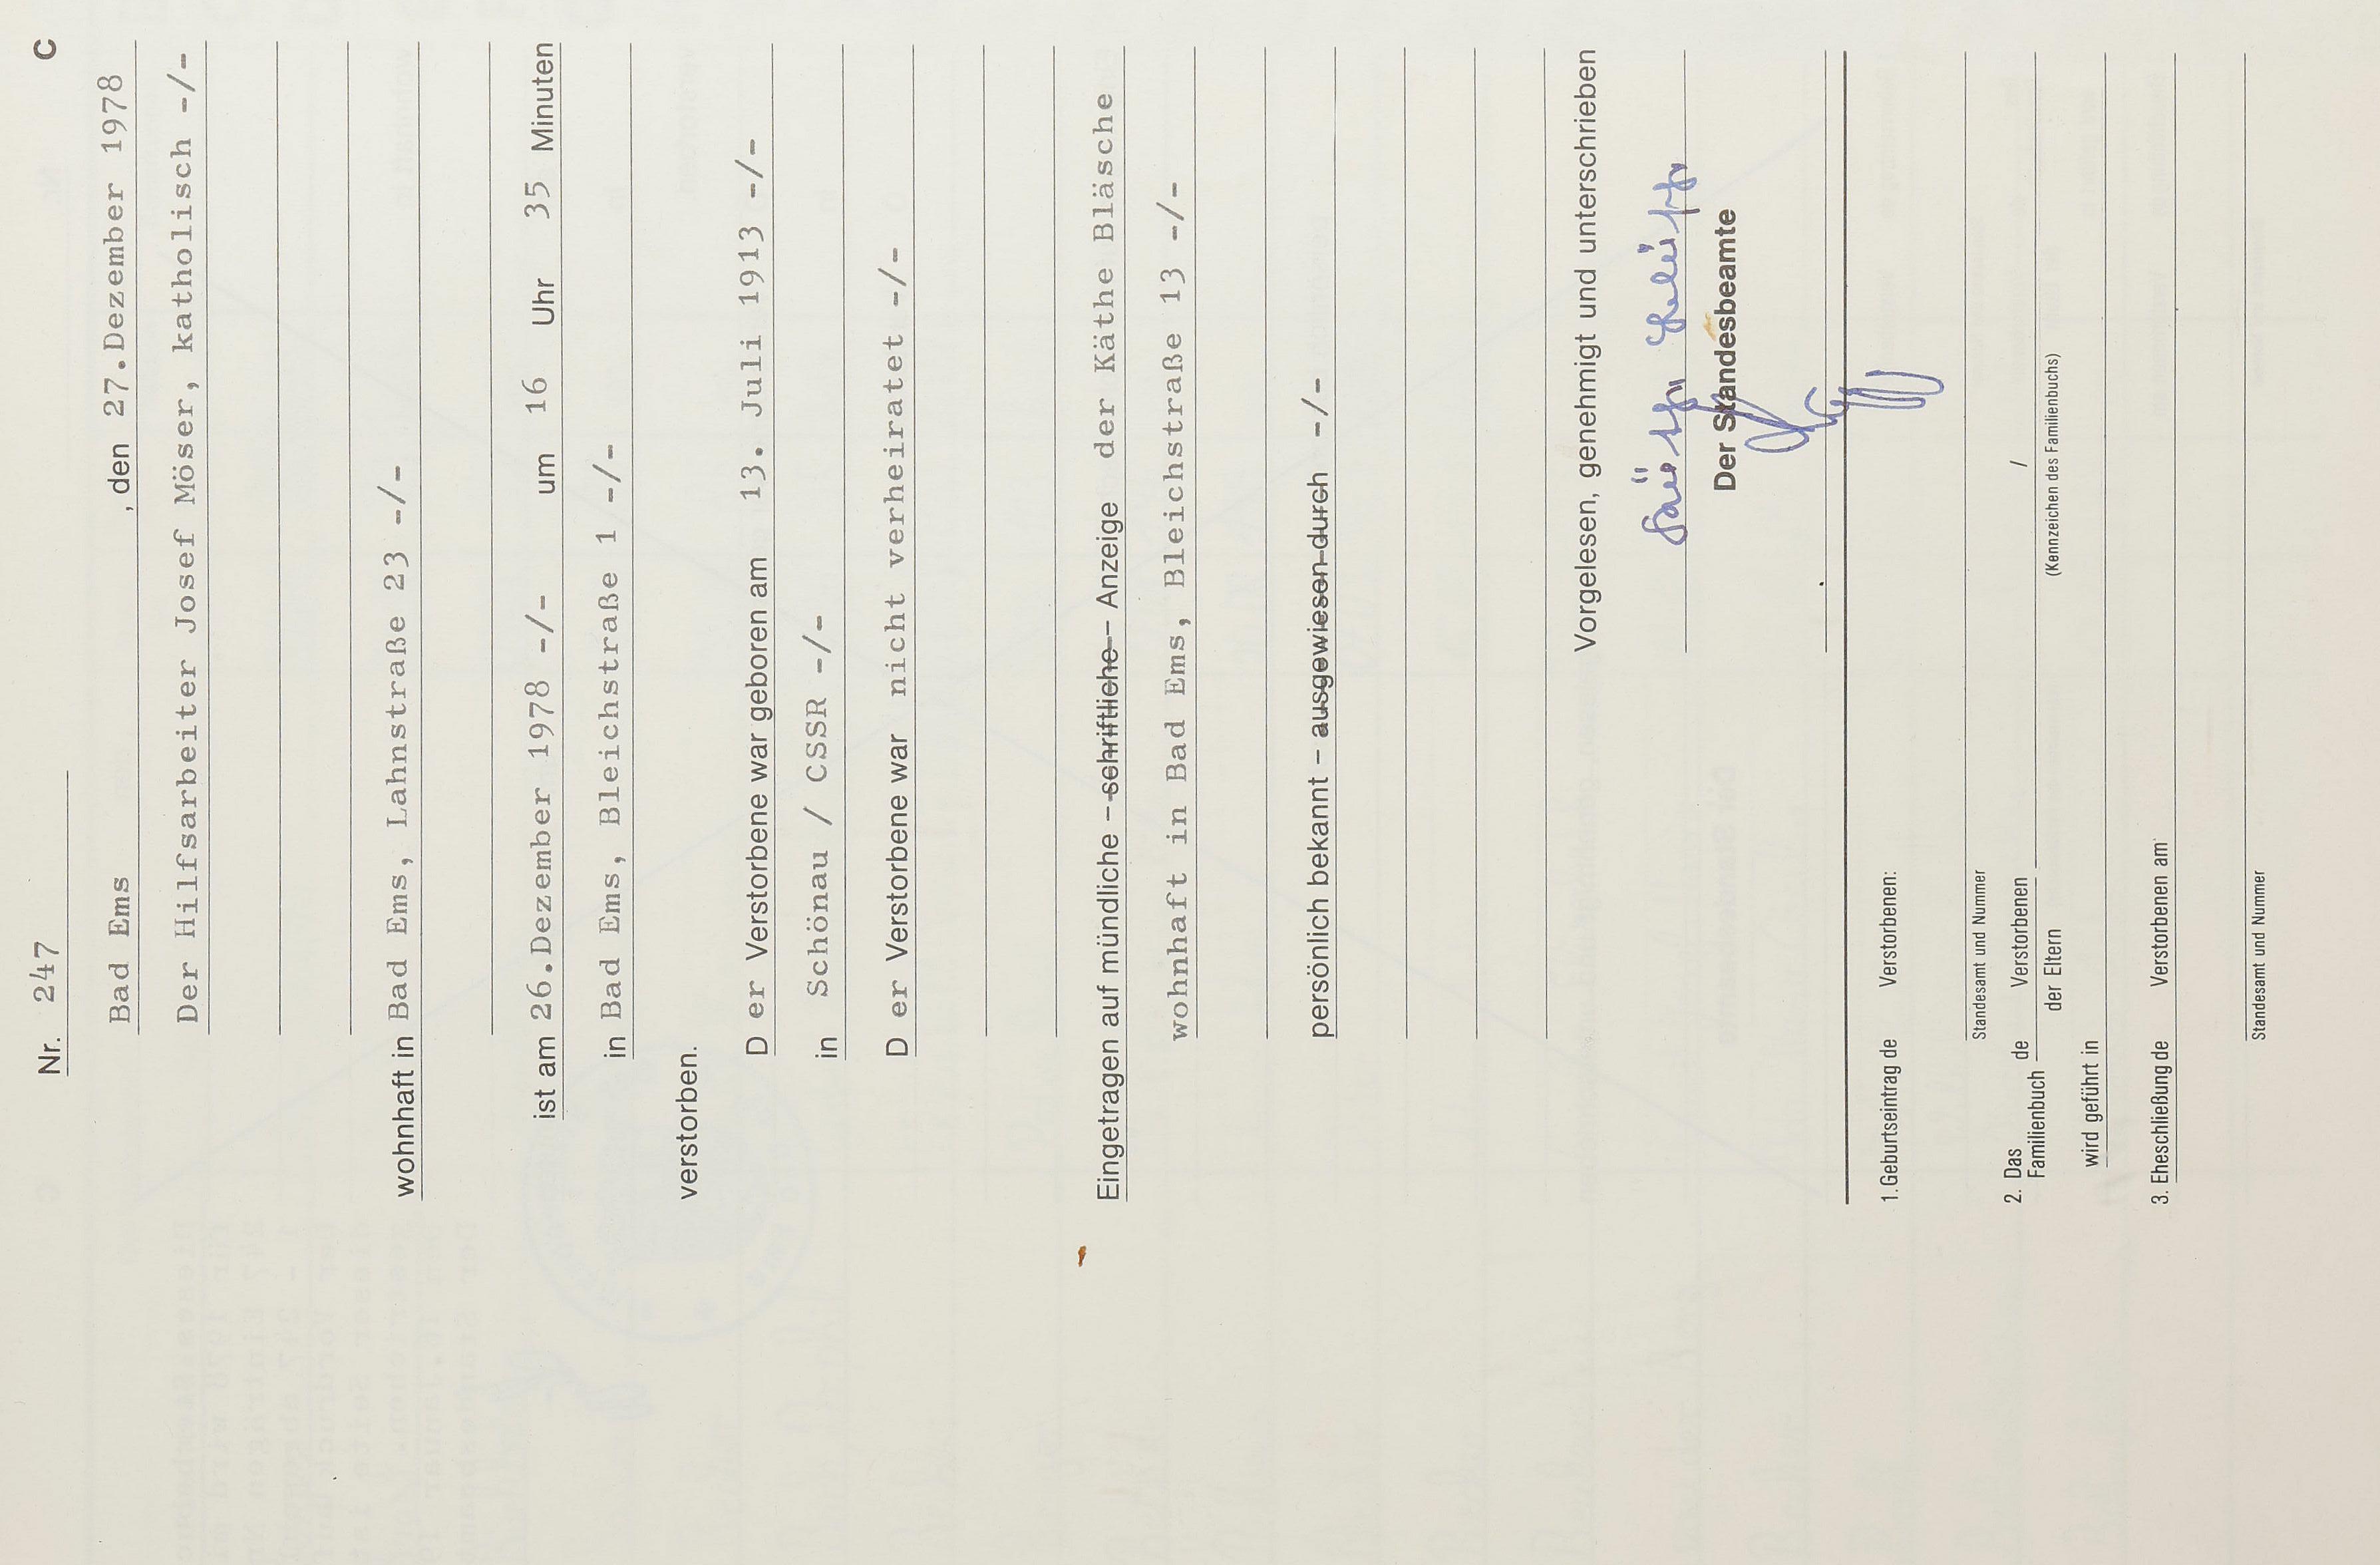 Nr. 247 C
Bad Ems , den 27.Dezember 1978
Der Hilfsarbeiter Josef Möser, katholisch -/-
wohnhaft in Bad Ems, Lahnstraße 23 -/-
ist am 26.Dezember 1978 -/- um 16 Uhr 35 Minuten
in Bad Ems, Bleichstraße 1 -/-
verstorben.
D er Verstorbene war geboren am 13. Juli 1913 -/-
in Schönau / CSSR -/-
D er Verstorbene war nicht verheiratet -/-
Eingetragen auf mündliche – schriftliche – Anzeige der Käthe Bläsche
wohnhaft in Bad Ems, Bleichstraße 13 -/-
persönlich bekannt – ausgewiesen durch -/-
Vorgelesen, genehmigt und unterschrieben
Der Standesbeamte
1. Geburtseintrag de Verstorbenen:
Standesamt und Nummer
2. Das Familienbuch de Verstorbenen / der Eltern
(Kennzeichen des Familienbuchs)
wird geführt in
3. Eheschließung de Verstorbenen am
Standesamt und Nummer